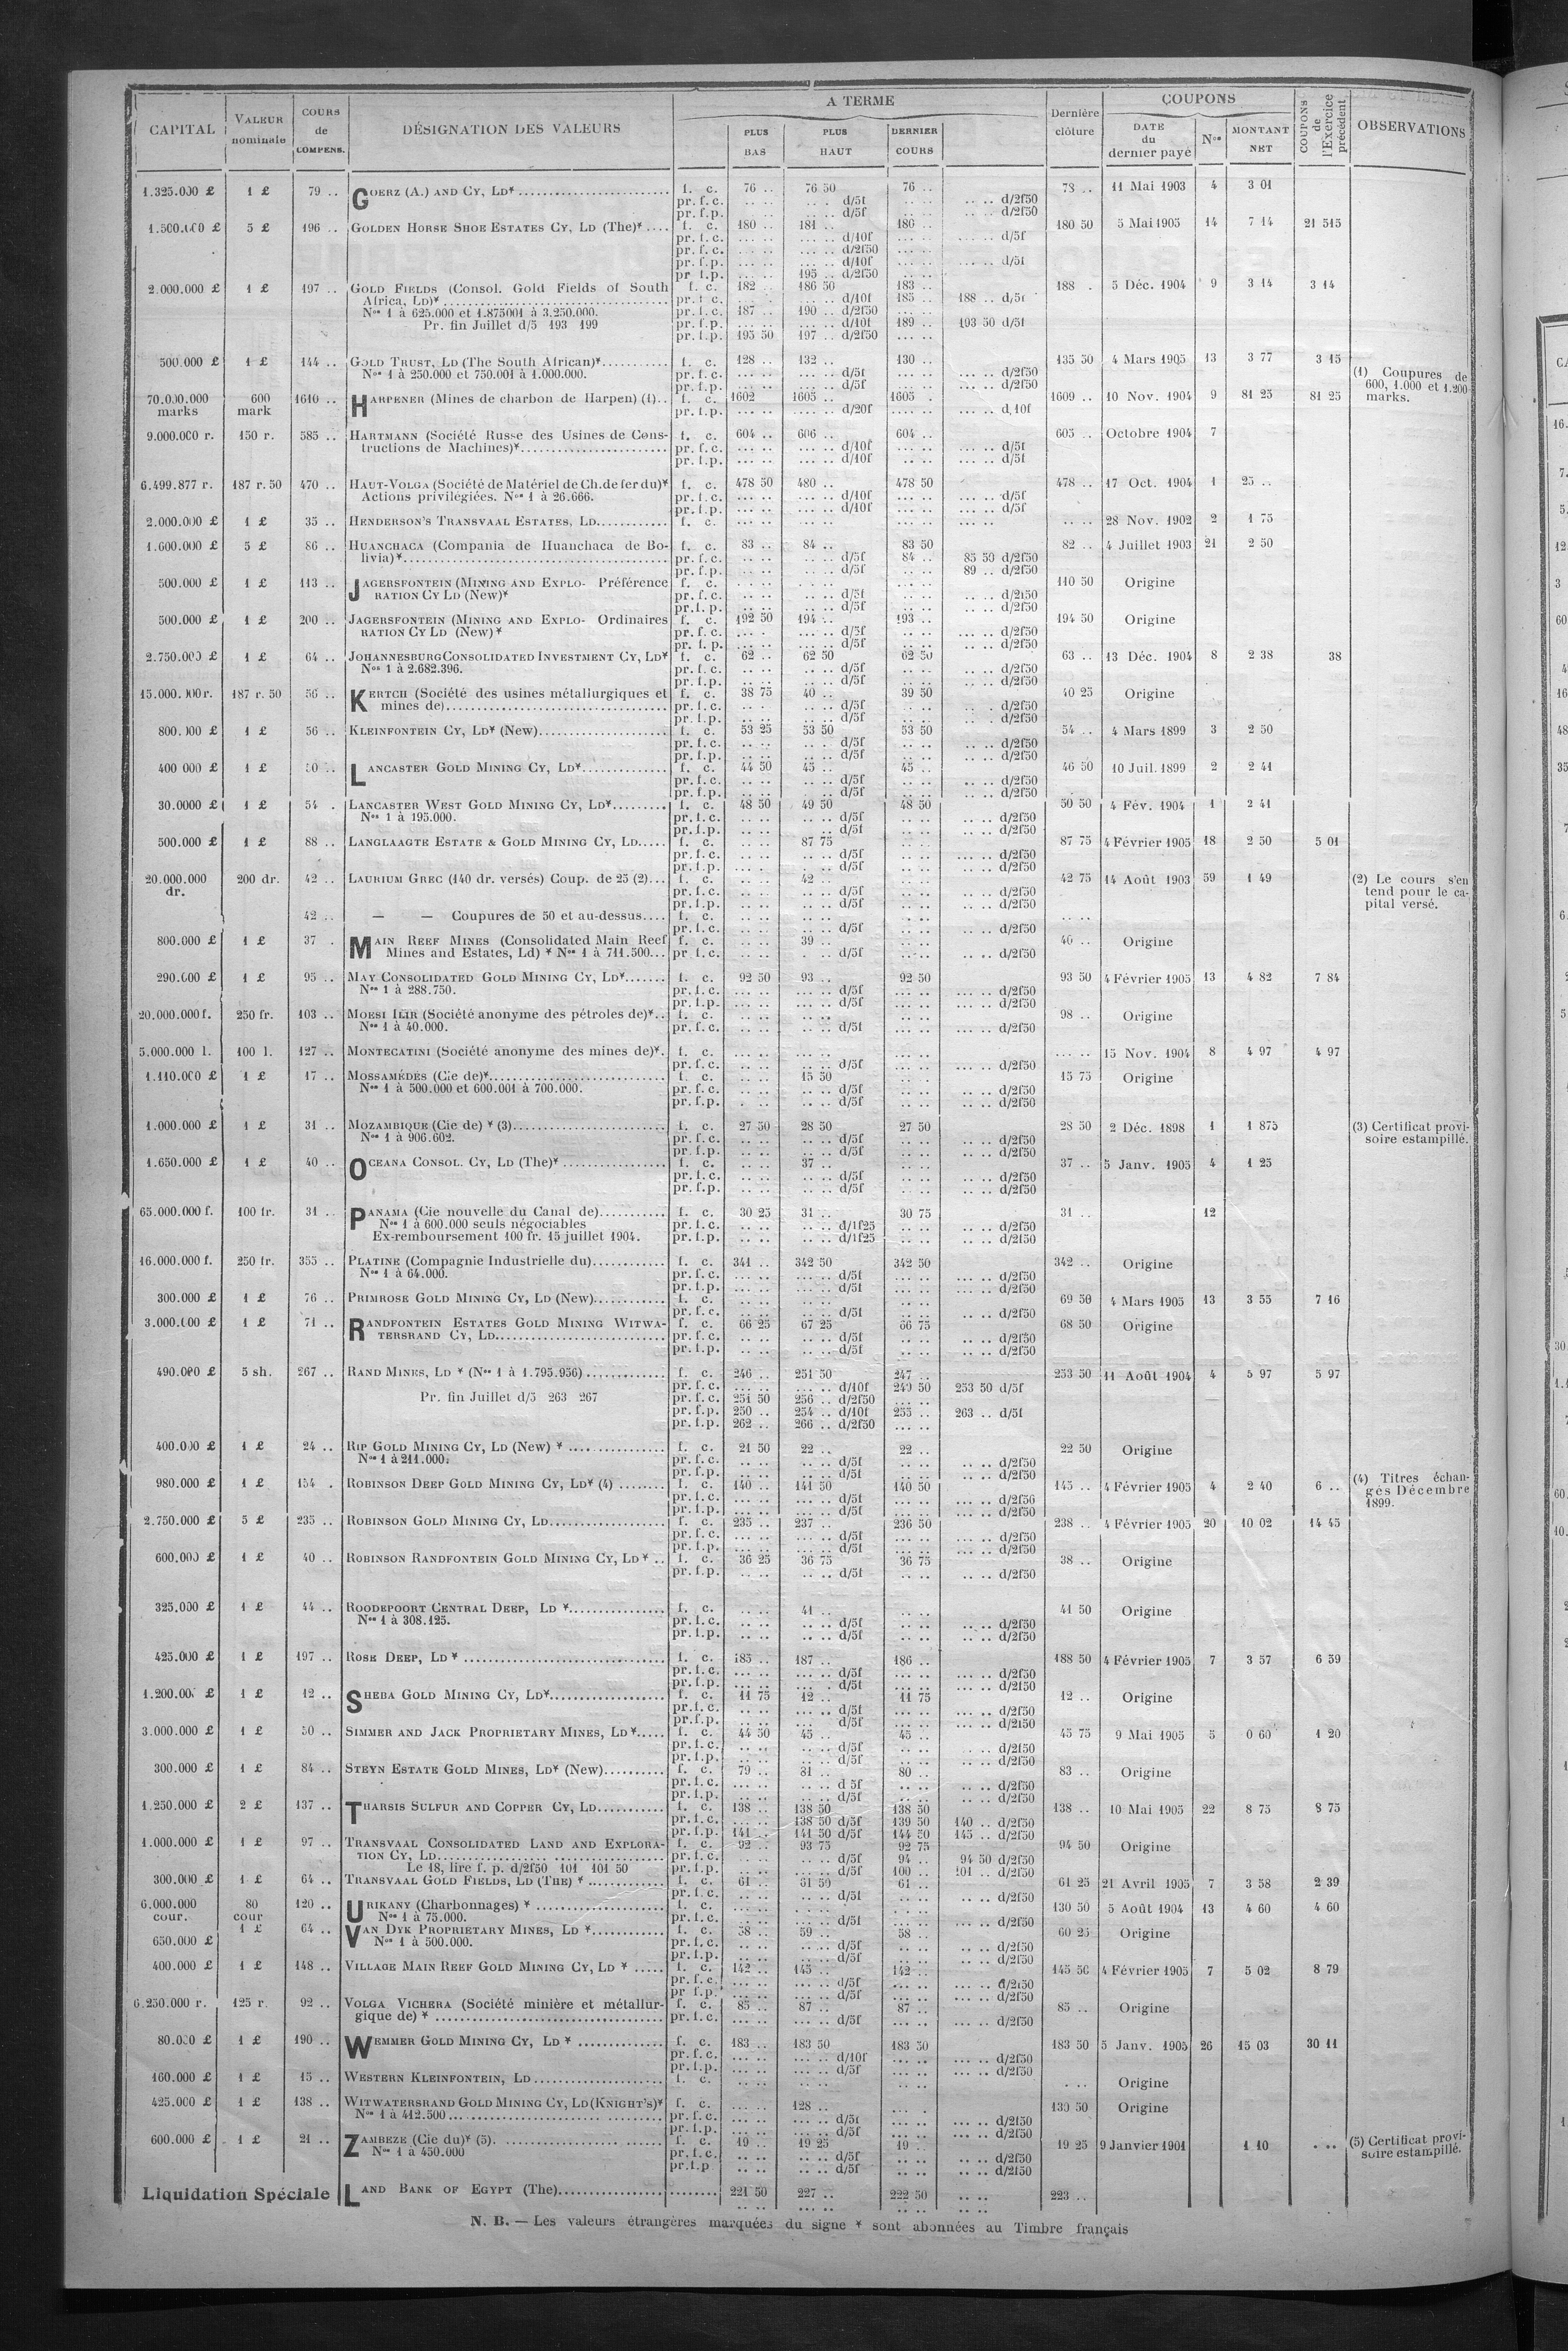 CAPITAL | VALEUR nominale | COURS de COMPENS. | DÉSIGNATION DES VALEURS | A TERME | PLUS BAS | PLUS HAUT | DERNIER COURS | Dernière clôture | COUPONS | DATE du dernier payé | Nos | MONTANT NET | COUPONS de l'Exercice précédent | OBSERVATIONS
1.325.000 £ 1 £ 79 .. GOERZ (A.) AND CY, LD* f. c. 76 .. 76 50 76 .. 78 .. 11 Mai 1903 4 3 01
pr. f. c. d/5f d/2f50
pr. f. p. d/5f d/2f50
5 £ 196 .. GOLDEN HORSE SHOE ESTATES CY, LD (The)* f. c. 180 .. 181 .. 180 .. 180 50 5 Mai 1905 14 7 14 21 515
pr. f. c. d/10f d/5f
pr. f. c. d/2f50
pr. f. p. d/10f d/5f
pr. f. p. 195 .. d/2f50
2.000.000 £ 1 £ 197 .. GOLD FIELDS (Consol. Gold Fields of South f. c. 182 .. 186 50 183 .. 188 . 5 Déc. 1904 9 3 14 3 14
Africa, Ld)* pr. f. c. d/10f 185 .. 188 .. d/5f
Nos 1 à 625.000 et 1.875001 à 3.250.000. pr. f. c. 187 .. 190 .. d/2f50
Pr. fin Juillet d/5 193 199 pr. f. p. d/10f 189 .. 193 50 d/5f
pr. f. p. 195 50 197 .. d/2f50
500.000 £ 1 £ 144 .. GOLD TRUST, LD (The South African)* f. c. 128 .. 132 .. 130 .. 135 50 4 Mars 1905 13 3 77 3 15
Nos 1 à 250.000 et 750.001 à 1.000.000. pr. f. c. d/5f d/2f50 (1) Coupures de
pr. f. p. d/5f d/2f50 600, 1.000 et 1.200
70.000.000 600 1610 .. HARPENER (Mines de charbon de Harpen) (1).. f. c. 1602 1605 .. 1605 . 1609 .. 10 Nov. 1904 9 81 25 81 25 marks.
marks mark pr. f. p. d/20f d, 10f
9.000.000 r. 150 r. 585 .. HARTMANN (Société Russe des Usines de Cons- f. c. 604 .. 606 .. 604 .. 605 .. Octobre 1904 7
tructions de Machines)* pr. f. c. d/10f d/5f
pr. f. p. d/10f d/5f
6.499.877 r. 187 r. 50 470 .. HAUT-VOLGA (Société de Matériel de Ch. de fer du)* f. c. 478 50 480 .. 478 50 478 .. 17 Oct. 1904 1 25 ..
Actions privilégiées. Nos 1 à 26.666. pr. f. c. d/10f d/5f
pr. f. p. d/10f d/5f
2.000.000 £ 1 £ 35 .. HENDERSON'S TRANSVAAL ESTATES, LD f. c. 28 Nov. 1902 2 1 75
1.600.000 £ 5 £ 86 .. HUANCHACA (Compania de Huanchaca de Bo- f. c. 83 .. 84 .. 83 50 82 .. 4 Juillet 1903 21 2 50
livia)* pr. f. c. d/5f 84 .. 85 50 d/2f50
pr. f. p. d/5f 89 .. d/2f50
500.000 £ 1 £ 113 .. JAGERSFONTEIN (MINING AND EXPLO- Préférence f. c. 110 50 Origine
RATION CY LD (New)* pr. f. c. d/5f d/2f50
pr. f. p. d/5f d/2f50
500.000 £ 1 £ 200 .. JAGERSFONTEIN (MINING AND EXPLO- Ordinaires f. c. 192 50 194 .. 193 .. 194 50 Origine
RATION CY LD (New)* pr. f. c. d/5f d/2f50
pr. f. p. d/5f d/2f50
2.750.000 £ 1 £ 64 .. JOHANNESBURG CONSOLIDATED INVESTMENT CY, LD* f. c. 62 .. 62 50 62 50 63 .. 13 Déc. 1904 8 2 38 38
Nos 1 à 2.682.396. pr. f. c. d/5f d/2f50
pr. f. p. d/5f d/2f50
187 r. 50 56 .. KERTCH (Société des usines métallurgiques et f. c. 38 75 40 .. 39 50 40 25 Origine
mines de) pr. f. c. d/5f d/2f50
pr. f. p. d/5f d/2f50
1 £ 56 .. KLEINFONTEIN CY, LD* (New) f. c. 53 25 53 50 53 50 54 .. 4 Mars 1899 3 2 50
pr. f. c. d/5f d/2f50
pr. f. p. d/5f d/2f50
400 000 £ 1 £ 50 .. LANCASTER GOLD MINING CY, LD* f. c. 44 50 45 .. 45 .. 46 50 10 Juil. 1899 2 2 41
pr. f. c. d/5f d/2f50
pr. f. p. d/5f d/2f50
30.0000 £ 1 £ 54 . LANCASTER WEST GOLD MINING CY, LD* f. c. 48 50 49 50 48 50 50 50 4 Fév. 1904 1 2 41
Nos 1 à 195.000. pr. f. c. d/5f d/2f50
pr. f. p. d/5f d/2f50
500.000 £ 1 £ 88 .. LANGLAAGTE ESTATE & GOLD MINING CY, LD f. c. 87 75 87 75 4 Février 1905 18 2 50 5 01
pr. f. c. d/5f d/2f50
pr. f. p. d/5f d/2f50
20.000.000 200 dr. 42 .. LAURIUM GREC (140 dr. versés) Coup. de 25 (2) f. c. 42 .. 42 75 14 Août 1903 59 1 49 (2) Le cours s'en
dr. pr. f. c. d/5f d/2f50 tend pour le ca-
pr. f. p. d/5f d/2f50 pital versé.
42 .. — — Coupures de 50 et au-dessus f. c.
pr. f. c. d/5f d/2f50
800.000 £ 1 £ 37 . MAIN REEF MINES (Consolidated Main Reef f. c. 39 .. 40 .. Origine
Mines and Estates, Ld) * Nos 1 à 711.500 pr. f. c. d/5f d/2f50
290.000 £ 1 £ 95 .. MAY CONSOLIDATED GOLD MINING CY, LD* f. c. 92 50 93 .. 92 50 93 50 4 Février 1905 13 4 82 7 84
Nos 1 à 288.750. pr. f. c. d/5f d/2f50
pr. f. p. d/5f d/2f50
20.000.000 f. 250 fr. 103 .. MORSI ILIR (Société anonyme des pétroles de)* f. c. 98 .. Origine
Nos 1 à 40.000. pr. f. c. d/5f d/2f50
5.000.000 l. 100 l. 127 .. MONTECATINI (Société anonyme des mines de)* f. c. 15 Nov. 1904 8 4 97 4 97
pr. f. c. d/5f d/2f50
1.110.000 £ 1 £ 17 .. MOSSAMÉDÈS (Cie de)* f. c. 15 50 15 75 Origine
Nos 1 à 500.000 et 600.001 à 700.000. pr. f. c. d/5f d/2f50
pr. f. p. d/5f d/2f50
1.000.000 £ 1 £ 31 .. MOZAMBIQUE (Cie de) * (3) f. c. 27 50 28 50 27 50 28 50 2 Déc. 1898 1 1 875 (3) Certificat provi-
Nos 1 à 906.602. pr. f. c. d/5f d/2f50 soire estampillé.
pr. f. p. d/5f d/2f50
1.650.000 £ 1 £ 40 .. OCEANA CONSOL. CY, LD (The)* f. c. 37 .. 37 .. 5 Janv. 1905 4 1 25
pr. f. c. d/5f d/2f50
pr. f. p. d/5f d/2f50
65.000.000 f. 100 fr. 31 .. PANAMA (Cie nouvelle du Canal de) f. c. 30 25 31 .. 30 75 31 .. 12
Nos 1 à 600.000 seuls négociables pr. f. c. d/1f25 d/2f50
Ex-remboursement 100 fr. 15 juillet 1904. pr. f. p. d/1f25 d/2f50
16.000.000 f. 250 fr. 355 .. PLATINE (Compagnie Industrielle du) f. c. 341 .. 342 50 342 50 342 .. Origine
Nos 1 à 64.000. pr. f. c. d/5f d/2f50
pr. f. p. d/5f d/2f50
300.000 £ 1 £ 76 .. PRIMROSE GOLD MINING CY, LD (New) f. c. 69 50 4 Mars 1905 13 3 55 7 16
pr. f. c. d/5f d/2f50
3.000.000 £ 1 £ 71 .. RANDFONTEIN ESTATES GOLD MINING WITWA- f. c. 66 25 67 25 66 75 68 50 Origine
TERSRAND CY, LD pr. f. c. d/5f d/2f50
pr. f. p. d/5f d/2f50
490.000 £ 5 sh. 267 .. RAND MINES, LD * (Nos 1 à 1.795.956) f. c. 246 .. 251 50 247 .. 253 50 11 Août 1904 4 5 97 5 97
pr. f. c. d/10f 249 50 253 50 d/5f
Pr. fin Juillet d/5 263 267 pr. f. c. 251 50 256 .. d/2f50
pr. f. p. 250 .. 254 .. d/10f 255 .. 263 .. d/5f
pr. f. p. 262 .. 266 .. d/2f50
400.000 £ 1 £ 24 .. RIP GOLD MINING CY, LD (New) * f. c. 21 50 22 .. 22 .. 22 50 Origine
Nos 1 à 211.000. pr. f. c. d/5f d/2f50
pr. f. p. d/5f d/2f50
980.000 £ 1 £ 154 . ROBINSON DEEP GOLD MINING CY, LD* (4) f. c. 140 .. 141 50 140 50 145 .. 4 Février 1905 4 2 40 6 .. (4) Titres échan-
pr. f. c. d/5f d/2f50 gés Décembre
pr. f. p. d/5f d/2f50 1899.
2.750.000 £ 5 £ 235 .. ROBINSON GOLD MINING CY, LD f. c. 235 .. 237 .. 236 50 238 .. 4 Février 1905 20 10 02 14 45
pr. f. c. d/5f d/2f50
pr. f. p. d/5f d/2f50
600.000 £ 1 £ 40 .. ROBINSON RANDFONTEIN GOLD MINING CY, LD * f. c. 36 25 36 75 36 75 38 .. Origine
pr. f. p. d/5f d/2f50
325.000 £ 1 £ 44 .. ROODEPOORT CENTRAL DEEP, LD * f. c. 41 .. 41 50 Origine
Nos 1 à 308.125. pr. f. c. d/5f d/2f50
pr. f. p. d/5f d/2f50
425.000 £ 1 £ 197 .. ROSE DEEP, LD * f. c. 185 .. 187 .. 186 .. 188 50 4 Février 1905 7 3 57 6 59
pr. f. c. d/5f d/2f50
pr. f. p. d/5f d/2f50
1 £ 12 .. SHEBA GOLD MINING CY, LD* f. c. 11 75 12 .. 11 75 12 .. Origine
pr. f. c. d/5f d/2f50
pr. f. p. d/5f d/2f50
3.000.000 £ 1 £ 50 .. SIMMER AND JACK PROPRIETARY MINES, LD * f. c. 44 50 45 .. 45 .. 45 75 9 Mai 1905 5 0 60 1 20
pr. f. c. d/5f d/2f50
pr. f. p. d/5f d/2f50
300.000 £ 1 £ 84 .. STEYN ESTATE GOLD MINES, LD* (New) f. c. 79 .. 81 .. 80 .. 83 .. Origine
pr. f. c. d 5f d/2f50
pr. f. p. d/5f d/2f50
1.250.000 £ 2 £ 137 .. THARSIS SULFUR AND COPPER CY, LD f. c. 138 .. 138 50 138 50 138 .. 10 Mai 1905 22 8 75 8 75
pr. f. c. 138 50 d/5f 139 50 140 .. d/2f50
pr. f. p. 141 .. 141 50 d/5f 144 50 145 .. d/2f50
1.000.000 £ 1 £ 97 .. TRANSVAAL CONSOLIDATED LAND AND EXPLORA- f. c. 92 .. 93 75 92 75 94 50 Origine
TION CY, LD pr. f. c. d/5f 94 .. 94 50 d/2f50
Le 18, lire f. p. d/2f50 101 101 50 pr. f. p. d/5f 100 .. 101 .. d/2f50
300.000 £ 1 £ 64 .. TRANSVAAL GOLD FIELDS, LD (THE) * f. c. 61 .. 61 50 61 .. 61 25 21 Avril 1905 7 3 58 2 39
pr. f. c. d/5f d/2f50
6.000.000 80 120 .. URIKANY (Charbonnages) * f. c. 130 50 5 Août 1904 13 4 60 4 60
cour. cour Nos 1 à 75.000. pr. f. c. d/5f d/2f50
650.000 £ 1 £ 64 .. VAN DYK PROPRIETARY MINES, LD * f. c. 58 .. 59 .. 58 .. 60 25 Origine
Nos 1 à 500.000. pr. f. c. d/5f d/2f50
pr. f. p. d/5f d/2f50
400.000 £ 1 £ 148 .. VILLAGE MAIN REEF GOLD MINING CY, LD * f. c. 142 .. 145 .. 142 .. 145 50 4 Février 1905 7 5 02 8 79
pr. f. c. d/5f d/2f50
pr. f. p. d/5f d/2f50
6.250.000 r. 125 r. 92 .. VOLGA VICHERA (Société minière et métallur- f. c. 85 .. 87 .. 87 .. 85 .. Origine
gique de) * pr. f. c. d/5f d/2f50
80.000 £ 1 £ 190 .. WEMMER GOLD MINING CY, LD * f. c. 183 .. 183 50 183 50 183 50 5 Janv. 1905 26 15 03 30 11
pr. f. c. d/10f d/2f50
pr. f. p. d/5f d/2f50
160.000 £ 1 £ 15 .. WESTERN KLEINFONTEIN, LD f. c. Origine
425.000 £ 1 £ 138 .. WITWATERSRAND GOLD MINING CY, LD (KNIGHT'S)* f. c. 128 .. 130 50 Origine
Nos 1 à 412.500 pr. f. c. d/5f d/2f50
pr. f. p. d/5f d/2f50
600.000 £ 1 £ 21 .. ZAMBEZE (Cie du)* (5). f. c. 19 .. 19 25 19 .. 19 25 9 Janvier 1901 1 10 (5) Certificat provi-
Nos 1 à 450.000 pr. f. c. d/5f d/2f50 soire estampillé.
pr. f. p d/5f d/2f50
Liquidation Spéciale LAND BANK OF EGYPT (The) 221 50 227 .. 222 50 223 ..
N. B. — Les valeurs étrangères marquées du signe * sont abonnées au Timbre français